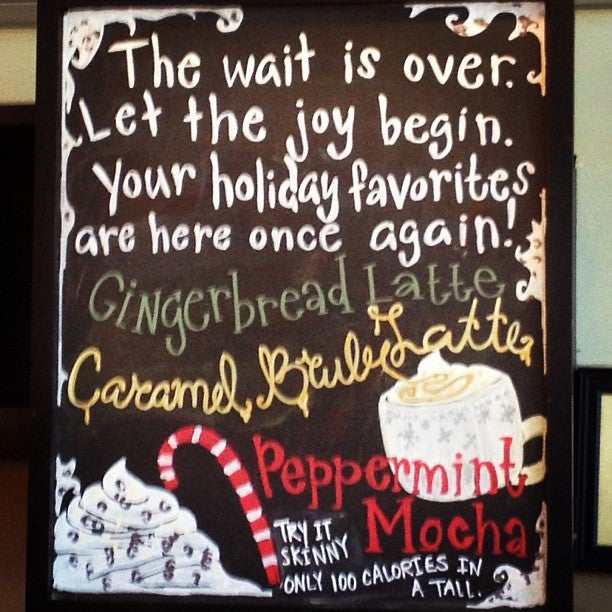 The wait is over.
Let the joy begin.
Your holiday favorites
are here once again!
Gingerbread Latte
Caramel Brule Latte
Peppermint
Mocha
TRY IT
SKINNY
ONLY 100 CALORIES IN
A TALL.